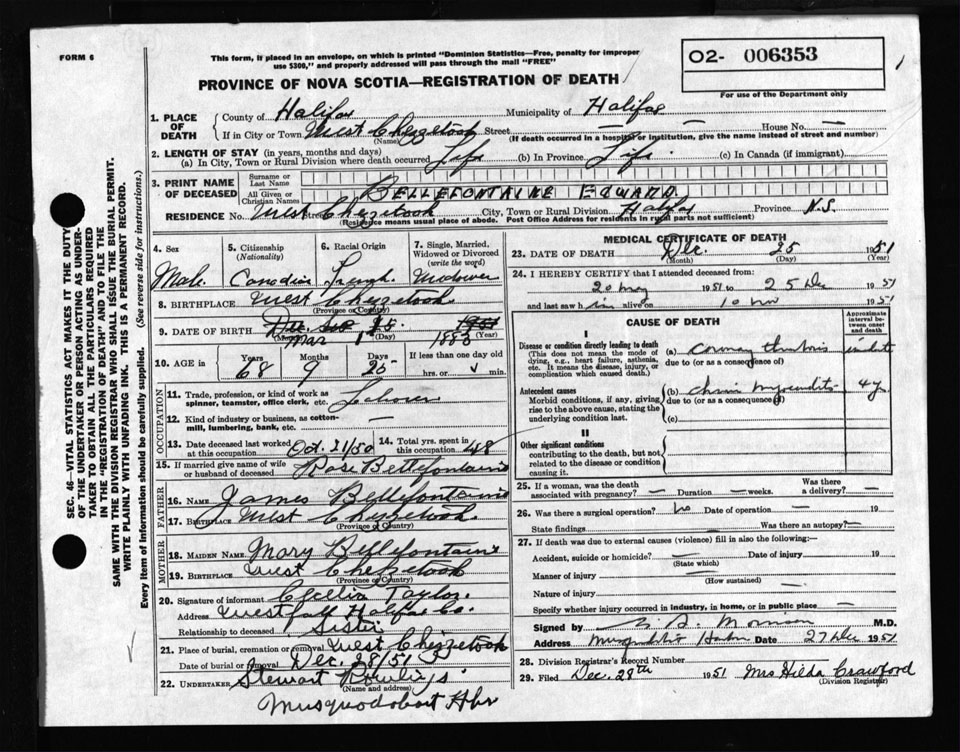 FORM 6
This form, if placed in an envelope, on which is printed "Dominion Statistics—Free, penalty for improper
use $300," and properly addressed will pass through the mail "FREE"
O2- 006353
For use of the Department only
PROVINCE OF NOVA SCOTIA—REGISTRATION OF DEATH
1. PLACE OF DEATH
County of Halifax Municipality of Halifax
If in City or Town West Chezetcook Street — House No. —
(Name) (If death occurred in a hospital or institution, give the name instead of street and number)
2. LENGTH OF STAY (in years, months and days)
(a) In City, Town or Rural Division where death occurred Life (b) In Province Life (c) In Canada (if immigrant)
3. PRINT NAME OF DECEASED
Surname or Last Name
All Given or Christian Names
BELLEFONTAINE EDWARD
RESIDENCE No. West Chezetcook Street City, Town or Rural Division Halifax Province N.S.
(Residence means usual place of abode. Post Office Address for residents in rural parts not sufficient)
4. Sex
Male
5. Citizenship (Nationality)
Canadian
6. Racial Origin
French
7. Single, Married, Widowed or Divorced (write the word)
Widower
8. BIRTHPLACE West Chezetcook
(Province or Country)
9. DATE OF BIRTH Dec. 25 1951
Mar 1 1883
(Day) (Year)
10. AGE Years Months Days If less than one day old
68 9 25 hrs. or min.
OCCUPATION
11. Trade, profession, or kind of work as
spinner, teamster, office clerk, etc. Laborer
12. Kind of industry or business, as cotton-
mill, lumbering, bank, etc.
13. Date deceased last worked at this occupation Oct. 21/50
14. Total yrs. spent in this occupation 48
15. If married give name of wife
or husband of deceased Rose Bellefontaine
FATHER
16. NAME James Bellefontaine
17. BIRTHPLACE West Chezetcook
(Province or Country)
MOTHER
18. MAIDEN NAME Mary Bellefontaine
19. BIRTHPLACE West Chezetcook
(Province or Country)
20. Signature of informant Cecelia Taylor
Address Halifax Co.
Relationship to deceased Sister
21. Place of burial, cremation or removal West Chezzetcook
Date of burial or removal Dec. 28/51
22. UNDERTAKER Stewart Rowlings
(Name and address)
Musquodoboit Hbr
MEDICAL CERTIFICATE OF DEATH
23. DATE OF DEATH Dec. 25 1951
(Month) (Day) (Year)
24. I HEREBY CERTIFY that I attended deceased from:
20 May 1951 to 25 Dec 1951
and last saw him alive on 10 Nov 1951
CAUSE OF DEATH
Approximate interval between onset and death
I
Disease or condition directly leading to death
(This does not mean the mode of
dying, e.g., heart failure, asthenia,
etc. It means the disease, injury, or
complication which caused death.)
(a)
due to (or as a consequence of)
Antecedent causes
Morbid conditions, if any, giving
rise to the above cause, stating the
underlying condition last.
(b) 4y
due to (or as a consequence of)
(c)
II
Other significant conditions
contributing to the death, but not
related to the disease or condition
causing it.
25. If a woman, was the death associated with pregnancy? — Duration — weeks. Was there a delivery? —
26. Was there a surgical operation? no Date of operation — 19
State findings Was there an autopsy? —
27. If death was due to external causes (violence) fill in also the following:—
Accident, suicide or homicide? — Date of injury 19
(State which)
Manner of injury —
(How sustained)
Nature of injury —
Specify whether injury occurred in industry, in home, or in public place —
Signed by Morrison M.D.
Address Musquodoboit Harbor Date 27 Dec 1951
28. Division Registrar's Record Number
29. Filed Dec. 28th 1951 Mrs Hilda Crawford
(Division Registrar)
SEC. 46—VITAL STATISTICS ACT MAKES IT THE DUTY
OF THE UNDERTAKER OR PERSON ACTING AS UNDER-
TAKER TO OBTAIN ALL THE PARTICULARS REQUIRED
IN THE "REGISTRATION OF DEATH" AND TO FILE THE
SAME WITH THE DIVISION REGISTRAR WHO SHALL ISSUE THE BURIAL PERMIT.
WRITE PLAINLY WITH UNFADING INK. THIS IS A PERMANENT RECORD.
Every item of information should be carefully supplied. (See reverse side for instructions.)